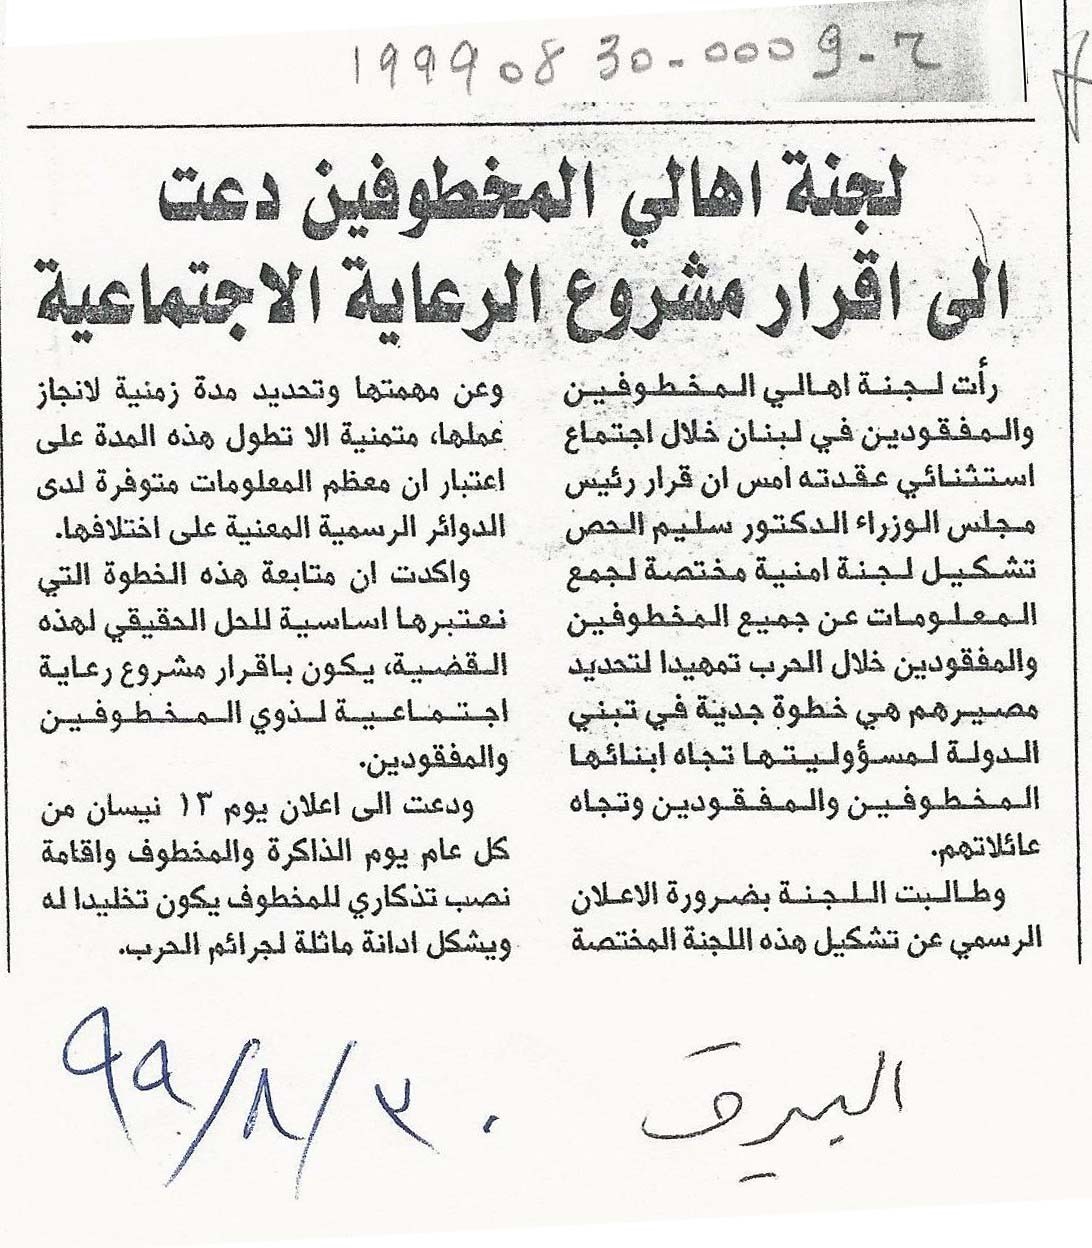 19990830-0009-2
لجنة اهالي المخطوفين دعت
الى اقرار مشروع الرعاية الاجتماعية
رأت لجنة اهالي المخطوفين
والمفقودين في لبنان خلال اجتماع
استثنائي عقدته امس ان قرار رئيس
مجلس الوزراء الدكتور سليم الحص
تشكيل لجنة امنية مختصة لجمع
المعلومات عن جميع المخطوفين
والمفقودين خلال الحرب تمهيدا لتحديد
مصيرهم هي خطوة جدية في تبني
الدولة لمسؤوليتها تجاه ابنائها
المخطوفين والمفقودين وتجاه
عائلاتهم.
وطالبت اللجنة بضرورة الاعلان
الرسمي عن تشكيل هذه اللجنة المختصة
وعن مهمتها وتحديد مدة زمنية لانجاز
عملها، متمنية الا تطول هذه المدة على
اعتبار ان معظم المعلومات متوفرة لدى
الدوائر الرسمية المعنية على اختلافها.
واكدت ان متابعة هذه الخطوة التي
نعتبرها اساسية للحل الحقيقي لهذه
القضية، يكون باقرار مشروع رعاية
اجتماعية لذوي المخطوفين
والمفقودين.
ودعت الى اعلان يوم ١٣ نيسان من
كل عام يوم الذاكرة والمخطوف واقامة
نصب تذكاري للمخطوف يكون تخليدا له
ويشكل ادانة ماثلة لجرائم الحرب.
البيرق
٩٩/٨/٣٠